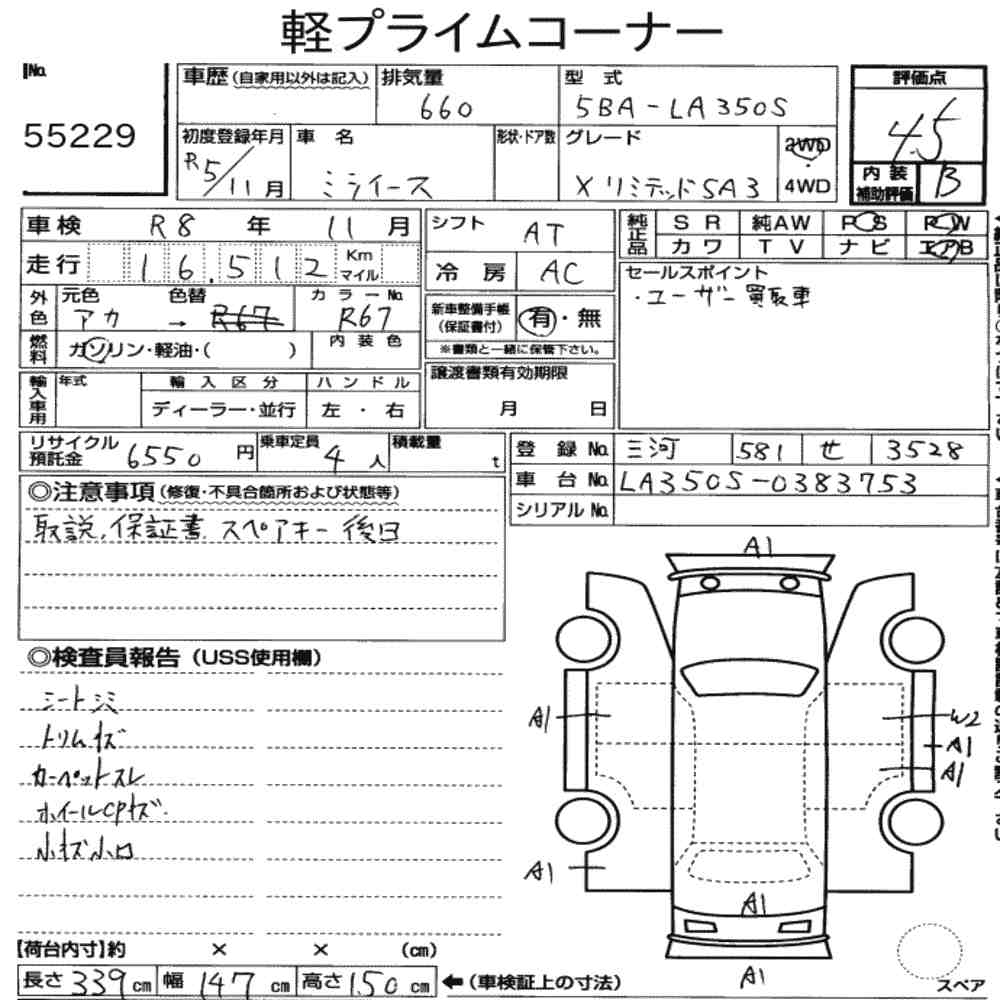 軽プライムコーナー
No. 55229
車歴(自家用以外は記入)
排気量 660
型式 5BA-LA350S
評価点 4.5
初度登録年月 R5/11月
車名 ミライース
形状・ドア数
グレード X リミテッドSA3
2WD・4WD
内装補助評価 B
車検 R8年 11月
シフト AT
純正品 SR 純AW PS PW
カワ TV ナビ エアB
走行 16,512 Km マイル
冷房 AC
セールスポイント
・ユーザー買取車
外色 元色 アカ → 色替 R67 カラーNo. R67
新車整備手帳(保証書付) 有・無
※書類と一緒に保管下さい。
燃料 ガソリン・軽油・( )
内装色
輸入車用 年式 輸入区分 ハンドル
ディーラー・並行 左・右
譲渡書類有効期限
月 日
リサイクル預託金 6550円 乗車定員 4人 積載量 t
登録No. 三河 581 せ 3528
車台No. LA350S-0383753
シリアルNo.
◎注意事項(修復・不具合箇所および状態等)
取説,保証書 スペアキー 後日
◎検査員報告(USS使用欄)
シートシミ
トリムキズ
カーペットスレ
ホイールCPキズ
小キズ小凹
A1
A1
W2
A1
A1
A1
A1
A1
スペア
【荷台内寸】約 × × (cm)
長さ339cm 幅147cm 高さ150cm ←(車検証上の寸法)